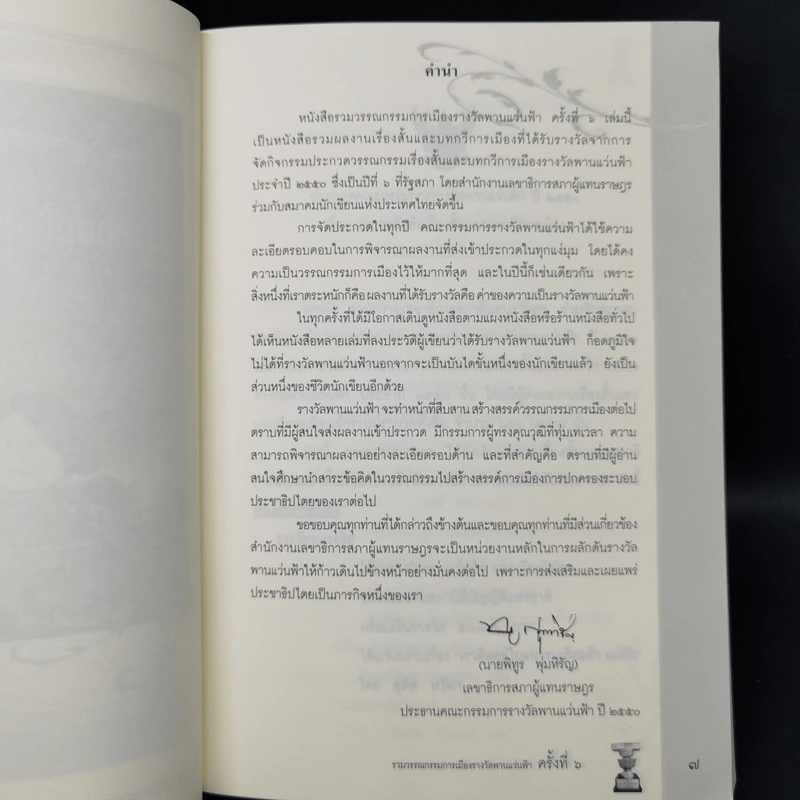 คำนำ
หนังสือรวมวรรณกรรมการเมืองรางวัลพานแว่นฟ้า ครั้งที่ ๖ เล่มนี้
เป็นหนังสือรวมผลงานเรื่องสั้นและบทกวีการเมืองที่ได้รับรางวัลจากการ
จัดกิจกรรมประกวดวรรณกรรมเรื่องสั้นและบทกวีการเมืองรางวัลพานแว่นฟ้า
ประจำปี ๒๕๕๐ ซึ่งเป็นปีที่ ๖ ที่รัฐสภา โดยสำนักงานเลขาธิการสภาผู้แทนราษฎร
ร่วมกับสมาคมนักเขียนแห่งประเทศไทยจัดขึ้น
การจัดประกวดในทุกปี คณะกรรมการรางวัลพานแว่นฟ้าได้ใช้ความ
ละเอียดรอบคอบในการพิจารณาผลงานที่ส่งเข้าประกวดในทุกแง่มุม โดยได้คง
ความเป็นวรรณกรรมการเมืองไว้ให้มากที่สุด และในปีนี้ก็เช่นเดียวกัน เพราะ
สิ่งหนึ่งที่เราตระหนักก็คือ ผลงานที่ได้รับรางวัลคือ ค่าของความเป็นรางวัลพานแว่นฟ้า
ในทุกครั้งที่ได้มีโอกาสเดินดูหนังสือตามแผงหนังสือหรือร้านหนังสือทั่วไป
ได้เห็นหนังสือหลายเล่มที่ลงประวัติผู้เขียนว่าได้รับรางวัลพานแว่นฟ้า ก็อดภูมิใจ
ไม่ได้ที่รางวัลพานแว่นฟ้านอกจากจะเป็นบันไดขั้นหนึ่งของนักเขียนแล้ว ยังเป็น
ส่วนหนึ่งของชีวิตนักเขียนอีกด้วย
รางวัลพานแว่นฟ้า จะทำหน้าที่สืบสาน สร้างสรรค์วรรณกรรมการเมืองต่อไป
ตราบที่มีผู้สนใจส่งผลงานเข้าประกวด มีกรรมการผู้ทรงคุณวุฒิที่ทุ่มเทเวลา ความ
สามารถพิจารณาผลงานอย่างละเอียดรอบด้าน และที่สำคัญคือ ตราบที่มีผู้อ่าน
สนใจศึกษานำสาระข้อคิดในวรรณกรรมไปสร้างสรรค์การเมืองการปกครองระบอบ
ประชาธิปไตยของเราต่อไป
ขอขอบคุณทุกท่านที่ได้กล่าวถึงข้างต้นและขอบคุณทุกท่านที่มีส่วนเกี่ยวข้อง
สำนักงานเลขาธิการสภาผู้แทนราษฎรจะเป็นหน่วยงานหลักในการผลักดันรางวัล
พานแว่นฟ้าให้ก้าวเดินไปข้างหน้าอย่างมั่นคงต่อไป เพราะการส่งเสริมและเผยแพร่
ประชาธิปไตยเป็นภารกิจหนึ่งของเรา
(นายพิทูร พุ่มหิรัญ)
เลขาธิการสภาผู้แทนราษฎร
ประธานคณะกรรมการรางวัลพานแว่นฟ้า ปี ๒๕๕๐
รวมวรรณกรรมการเมืองรางวัลพานแว่นฟ้า ครั้งที่ ๖
๗